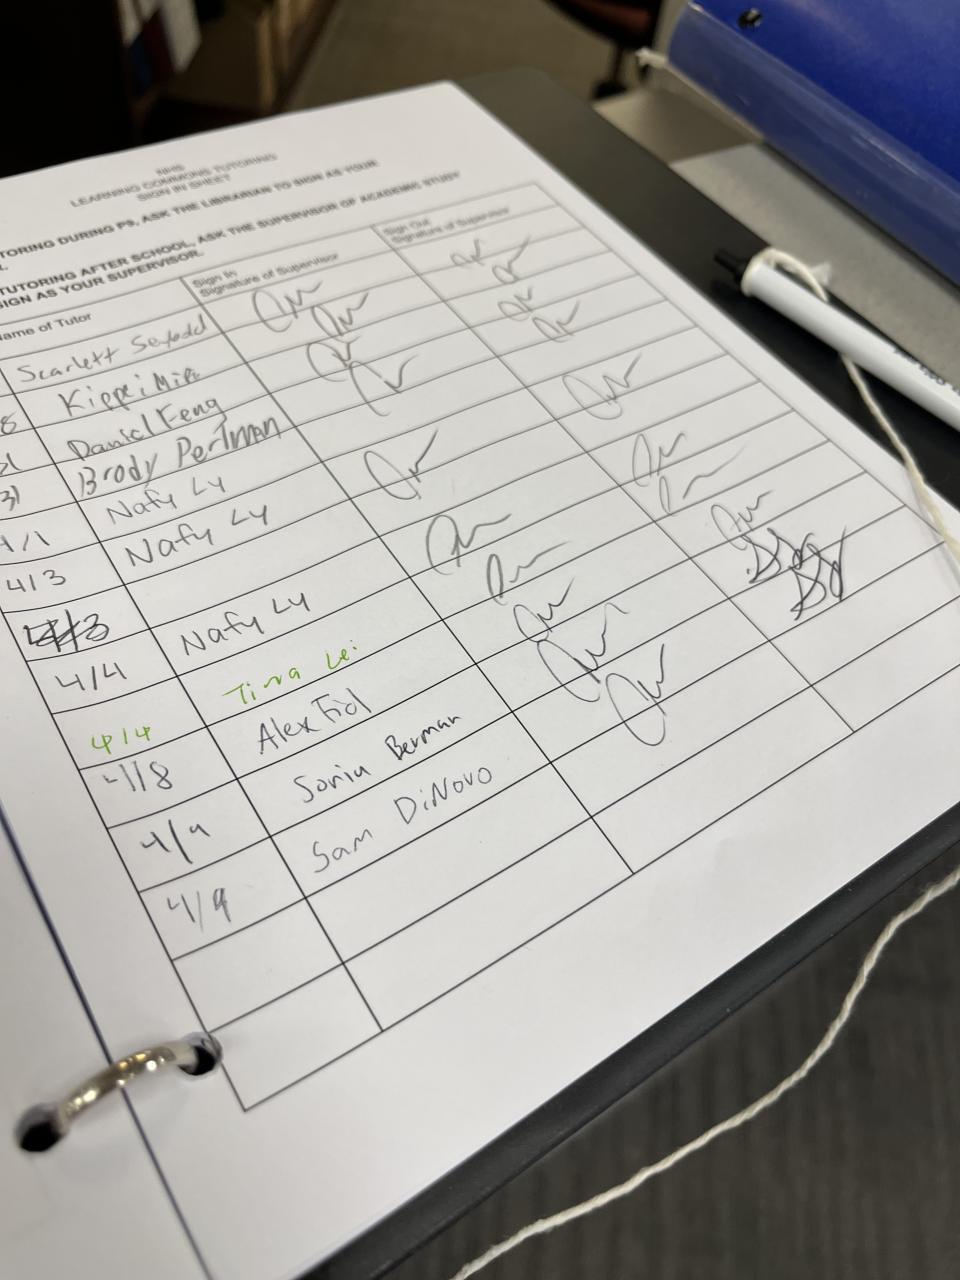 NHS
LEARNING COMMONS TUTORING
SIGN IN SHEET
TORING DURING P9, ASK THE LIBRARIAN TO SIGN AS YOUR
TUTORING AFTER SCHOOL, ASK THE SUPERVISOR OF ACADEMIC STUDY
SIGN AS YOUR SUPERVISOR.
ame of Tutor Sign In Signature of Supervisor Sign Out Signature of Supervisor
Scarlett
8 Kippei
Daniel Feng
31 Brody Perlman
4/1 Nafy Ly
4/3 Nafy Ly
4/3
4/4 Nafy Ly
4/4 Tina Lei
4/8 Alex Fiol
4/9 Berman
4/9 Sam DiNovo